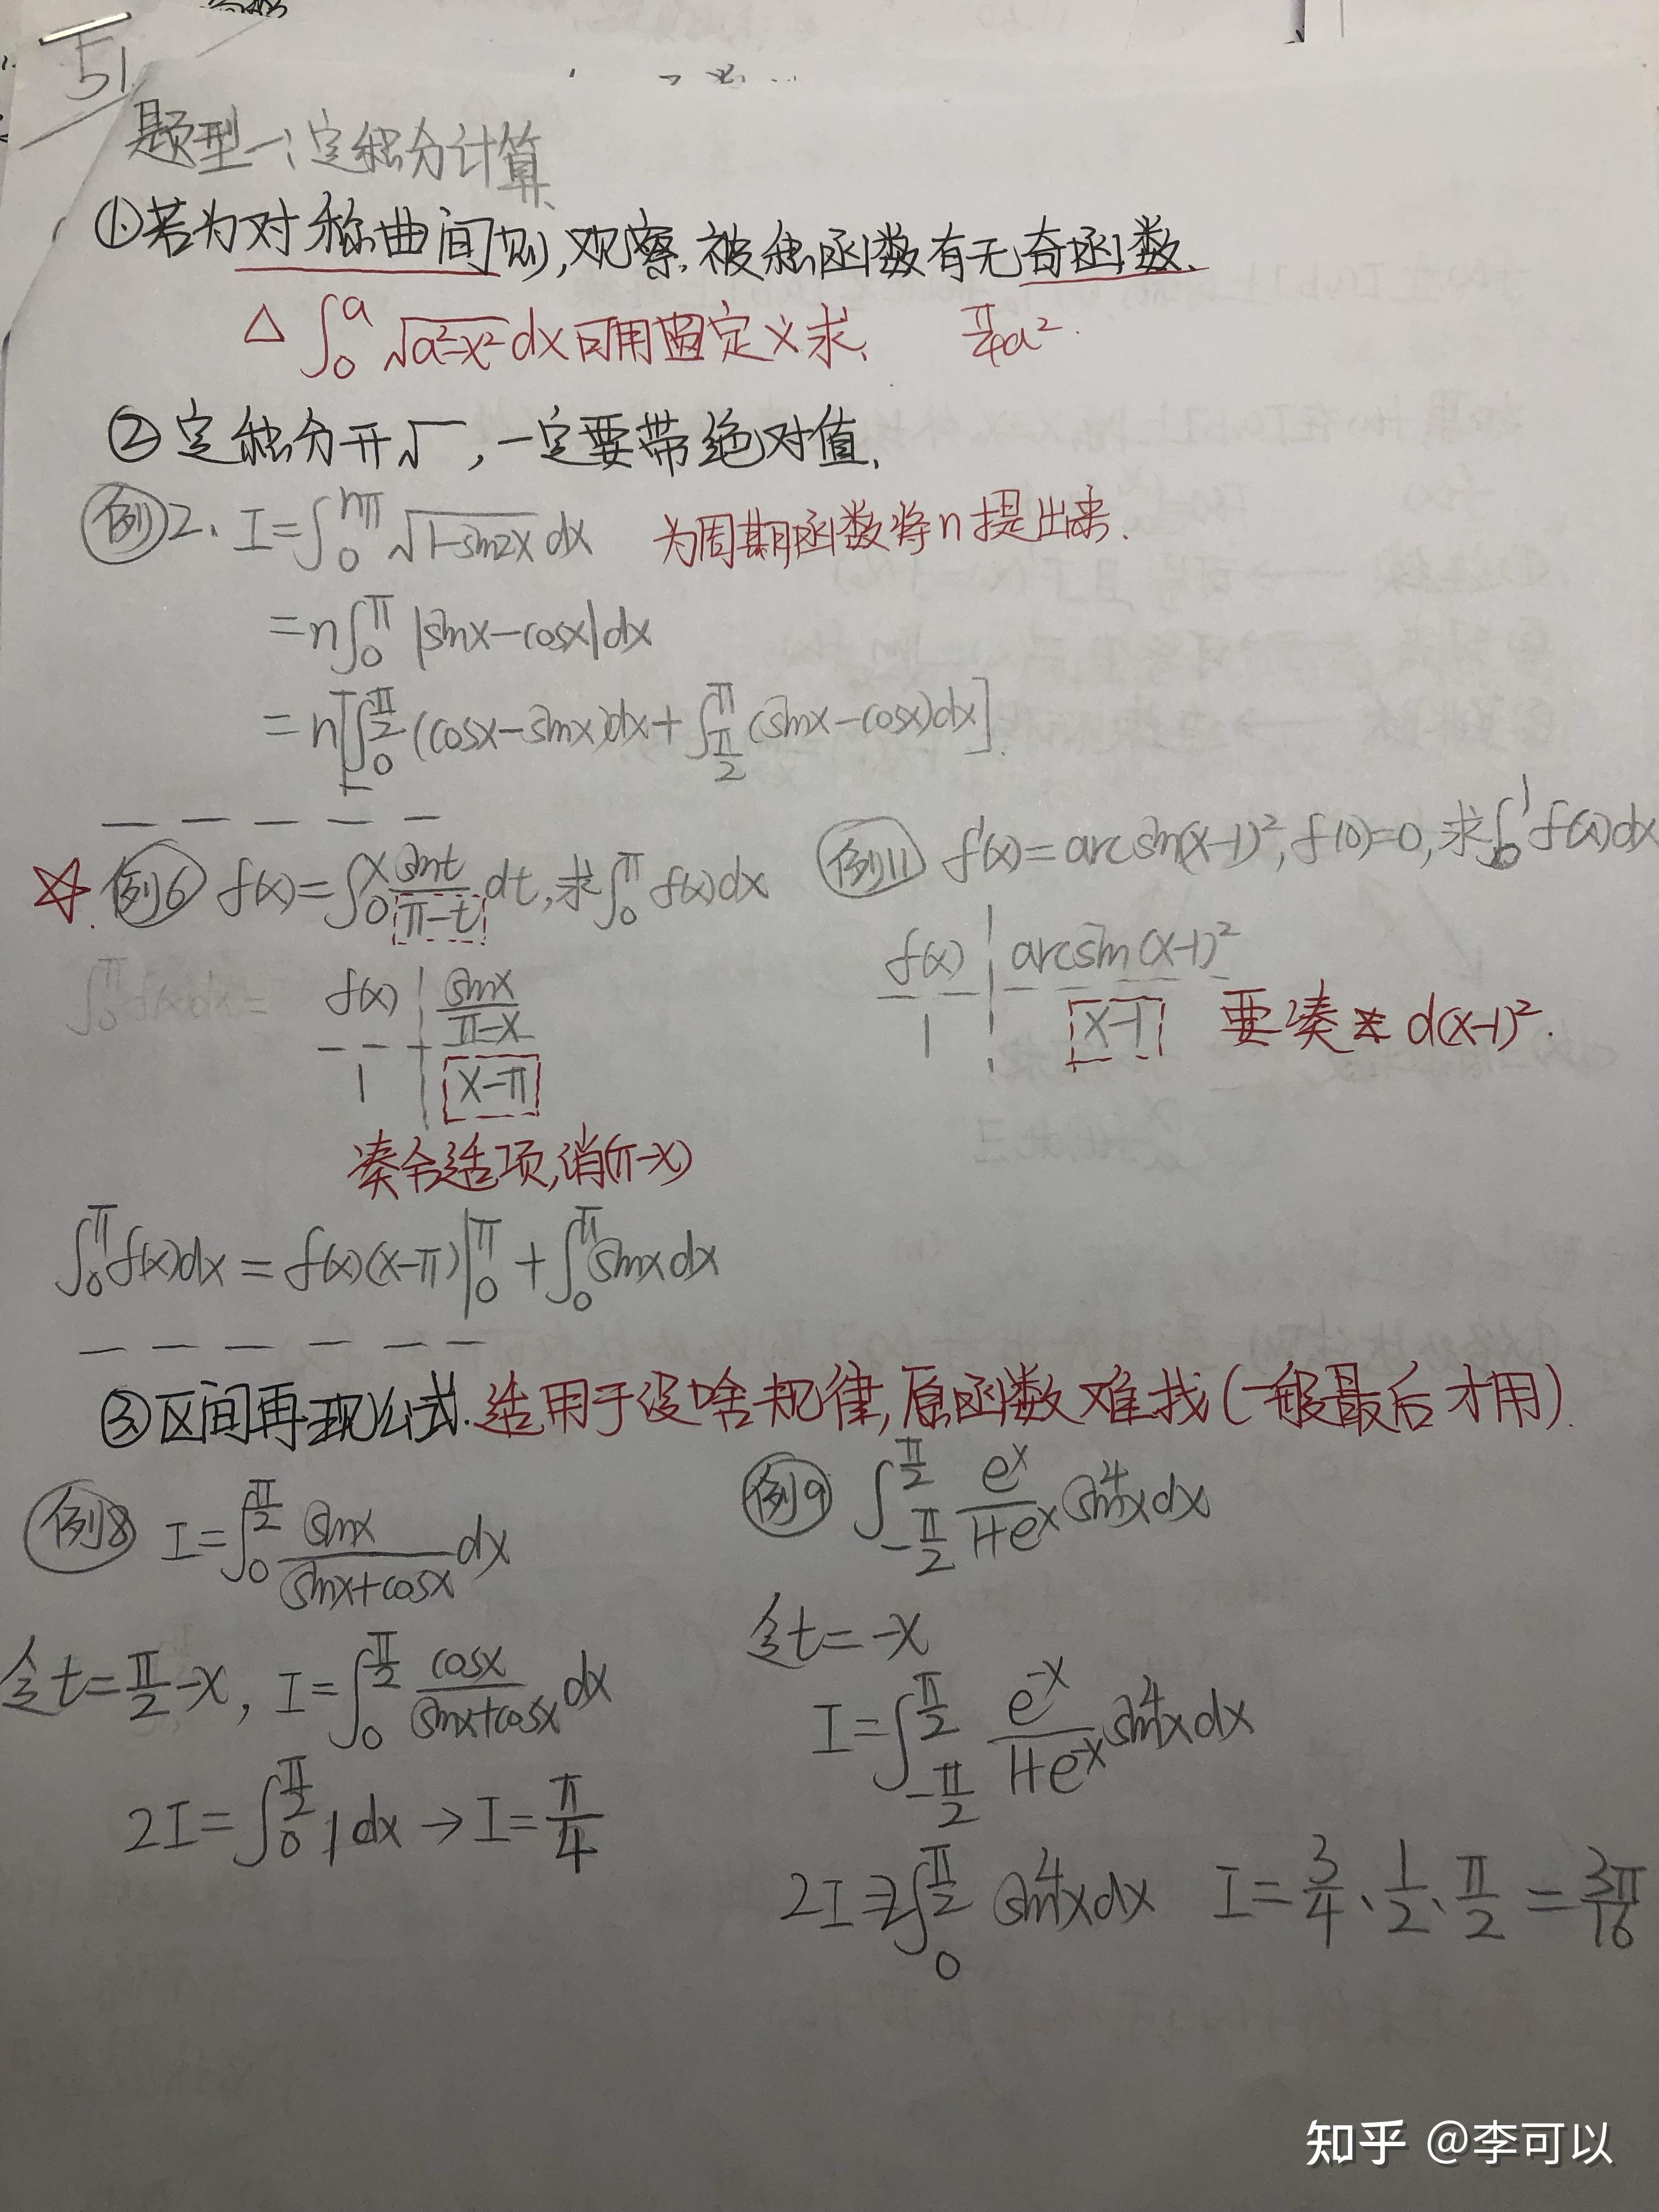 51
题型一:定积分计算
①若为对称曲间则,观察,被积函数有无奇函数、
△ ∫₀ᵃ √a²-x² dx 可用固定义求、 π/4 a².
②定积分开√ ,一定要带绝对值,
例2、 I=∫₀ⁿᵖⁱ √1-sin2x dx 为周期函数将n提出来.
=n∫₀^π |sinx-cosx|dx
=n[∫₀^(π/2) (cosx-sinx)dx+∫_(π/2)^π (sinx-cosx)dx].
☆. 例6 f(x)=∫₀ˣ sint/(π-t) dt,求∫₀^π f(x)dx
∫₀^π f(x)dx=
f(x) | sinx/(π-x)
1 | x-π
凑合适项,消(π-x)
例11 f'(x)=arcsin(x-1)²,f(0)=0,求∫₀¹f(x)dx
f(x) | arcsin(x-1)²
1 | x-1 要凑 d(x-1)².
∫₀^π f(x)dx=f(x)(x-π)|₀^π+∫₀^π sinx dx
③区间再现公式.适用于没啥规律,原函数难找(一般最后才用).
例8 I=∫₀^(π/2) sinx/(sinx+cosx) dx
令t=π/2-x, I=∫₀^(π/2) cosx/(sinx+cosx) dx
2I=∫₀^(π/2) 1dx→I=π/4
例9 ∫_(-π/2)^(π/2) eˣ/(1+eˣ) sin⁴xdx
令t=-x
I=∫_(-π/2)^(π/2) e⁻ˣ/(1+e⁻ˣ) sin⁴xdx
2I=2∫₀^(π/2) sin⁴xdx I=3/4·1/2·π/2=3π/16
知乎 @李可以